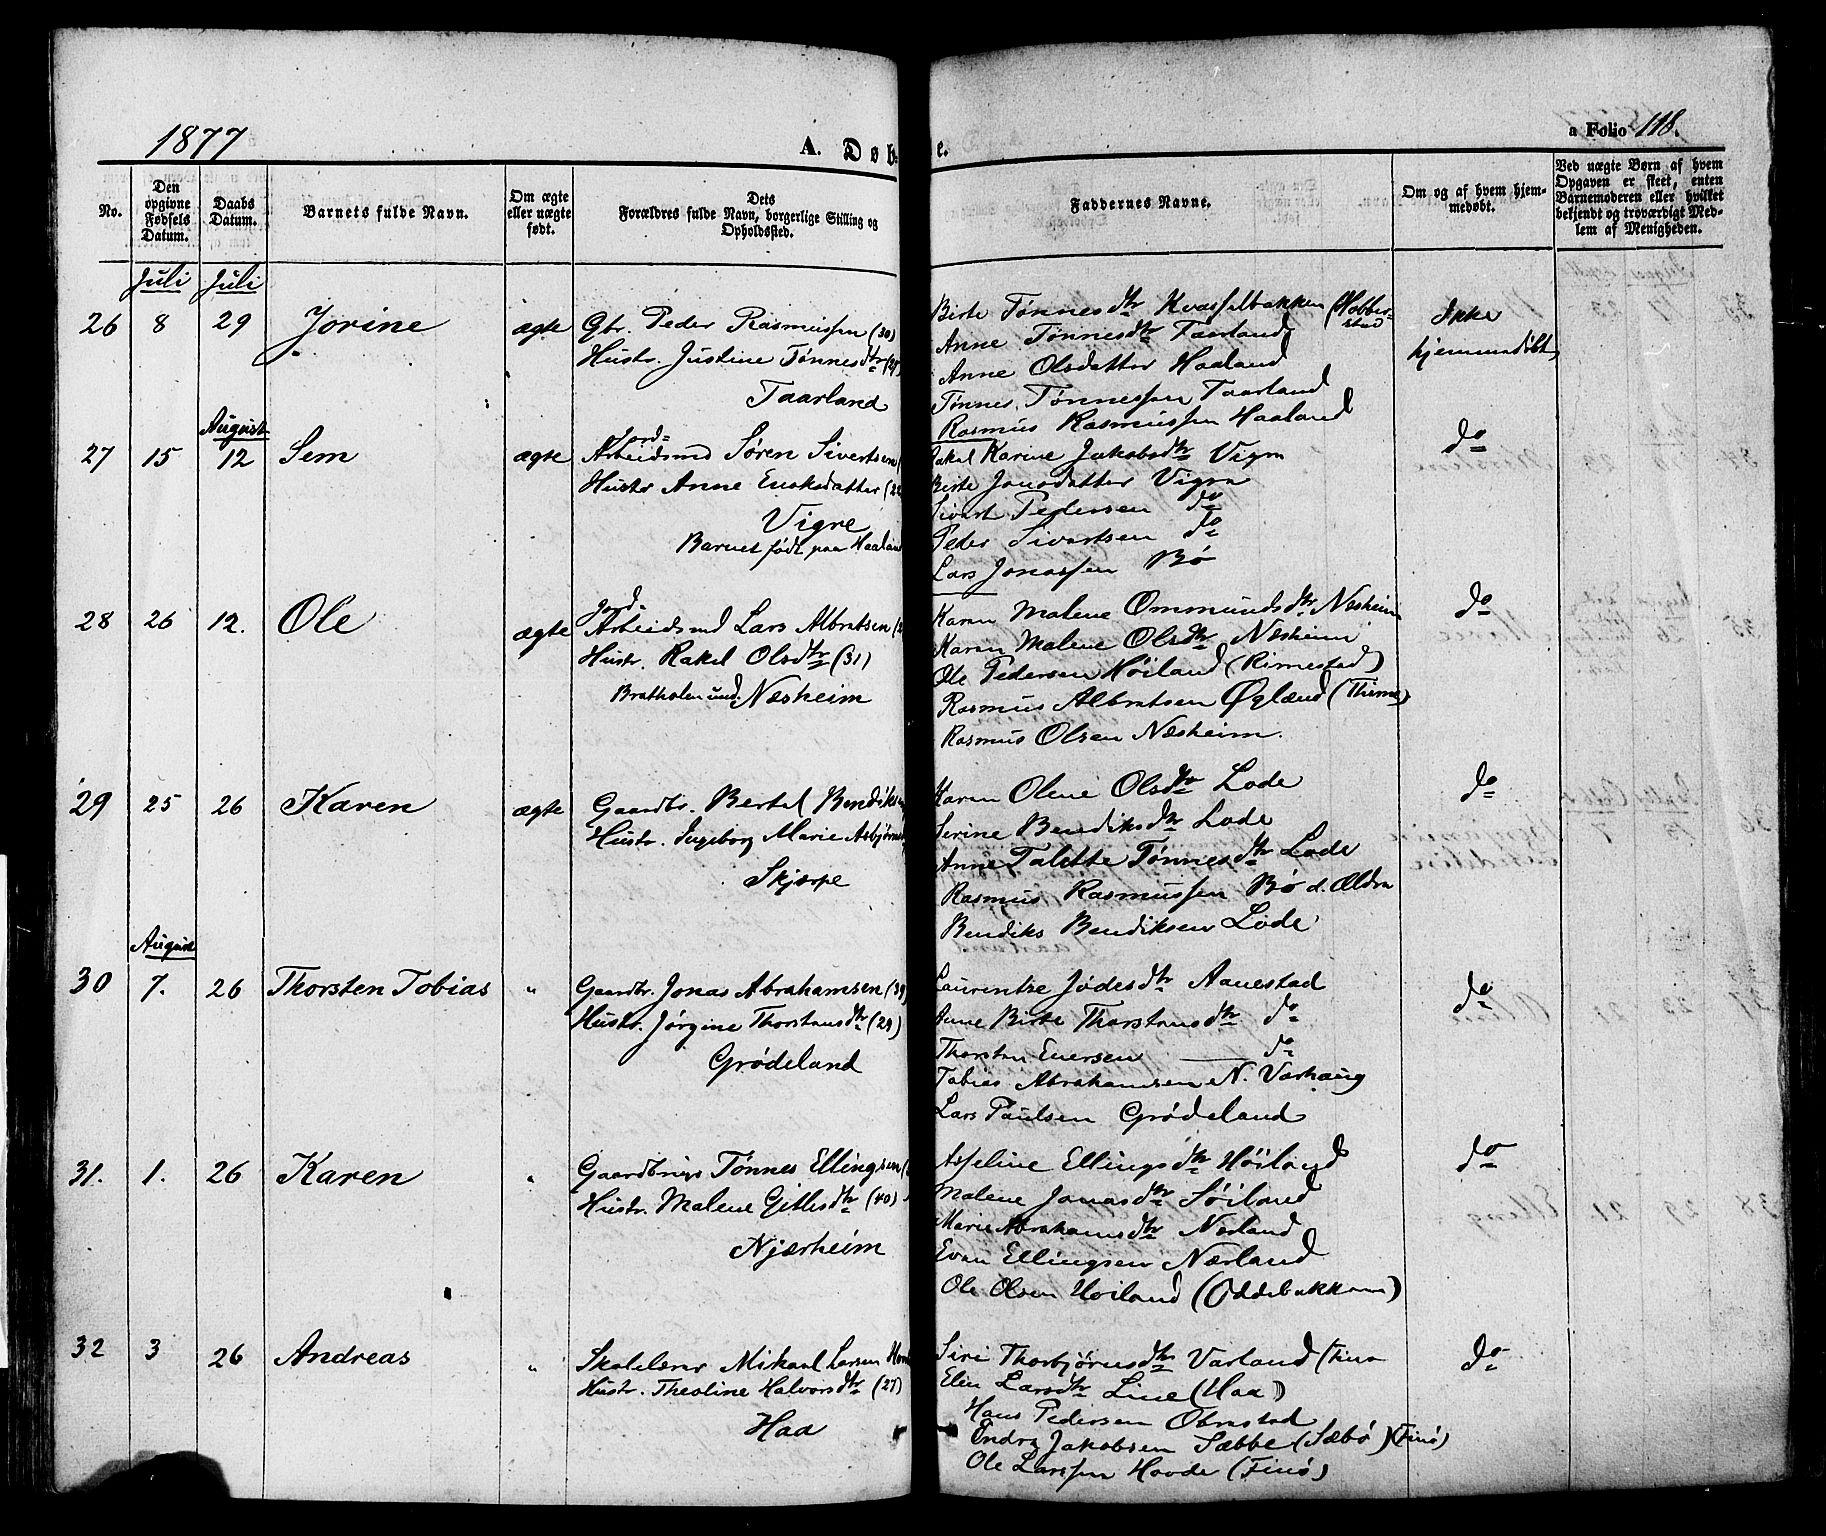 1877
A. Døb-
e.
a Folio 118.
No.
Den opgivne Fødsels Datum.
Daabs Datum.
Barnets fulde Navn.
Om ægte eller uægte født.
Dets Forældres fulde Navn, borgerlige Stilling og Opholdssted.
Faddernes Navne.
Om og af hvem hjemmedøbt.
Ved uægte Børn af hvem Opgaven er skeet, enten Barnemoderen eller hvilket bekjendt og troværdigt Medlem af Menigheden.
Juli Juli
26 8 29 Jorine ægte Gbr. Peder Rasmussen (30)
Hustr. Justine Tønnesdtr (27)
Taarland
Birte Tønnesdtr Kvasselbakken (Hobberstad
Anne Tønnesdtr Taarland
Anne Olsdatter Haaland
Tønnes Tønnessen Taarland
Rasmus Rasmussen Haaland
Ikke
hjemmedøbt
August
27 15 12 Sem ægte Jord=
Arbeidsmd Søren Sivertsen
Hustr Anne Enoksdatter (22
Vigre
Barnet født paa Haalan
Rakel Karine Jakobsdtr Vigre
Birte Jonsdatter Vigre
Sivert Pedersen do
Peder Sivertsen do
Lars Jonassen Bø
do
28 26 12. Ole ægte Jord.
Arbeidsmd Lars Albretsen
Hustr. Rakel Olsdtr (31)
Bratholen und. Næsheim
Karen Malene Ommundsdtr Næsheim
Karen Malene Olsdtr Næsheim
Ole Pedersen Høiland (Rimestad)
Rasmus Albretsen Øglænd (Thime)
Rasmus Olsen Næsheim.
do
29 25 26 Karen ægte Gaardbr. Bertel Bendiksen
Hustr. Ingeborg Marie Asbjørns
Skjærpe
Karen Oline Olsdtr Lode
Serine Bendiksdtr Lode
Anne Talette Tønnesdtr Lode
Rasmus Rasmussen Bø d. Ældre
Bendiks Bendiksen Lode
do
August
30 7. 26 Thorsten Tobias " Gaardbr. Jonas Abrahamsen (39
Hustr. Jørgine Thorstensdtr (29)
Grødeland
Laurentze Jødesdtr Aanestad
Anne Birte Thorstensdtr do
Thorsten Enersen do
Tobias Abrahamsen N. Varhaug
Lars Paulsen Grødeland
do
31. 1. 26 Karen " Gaardbrugr Tønnes Ellingsen
Hustr. Malene Gitlesdtr (40)
Njærheim
Asseline Ellingsdtr Høiland
Malene Jonasdtr Søiland
Marie Abrahamsdtr Nærland
Even Ellingsen Nærland
Ole Olsen Høiland (Oddebakken)
do
32 3 26 Andreas " Skolelærer Mikael Larsen
Hustr. Theoline Halvorsdtr (27)
Haa
Siri Thorbjørnsdtr Varland (Finø
Elen Larsdtr Line (Haa)
Hans Pedersen Obrestad
Endre Jakobsen Sæbbe (Sæbø) (Finø)
Ole Larssen Hovde (Finø)
do